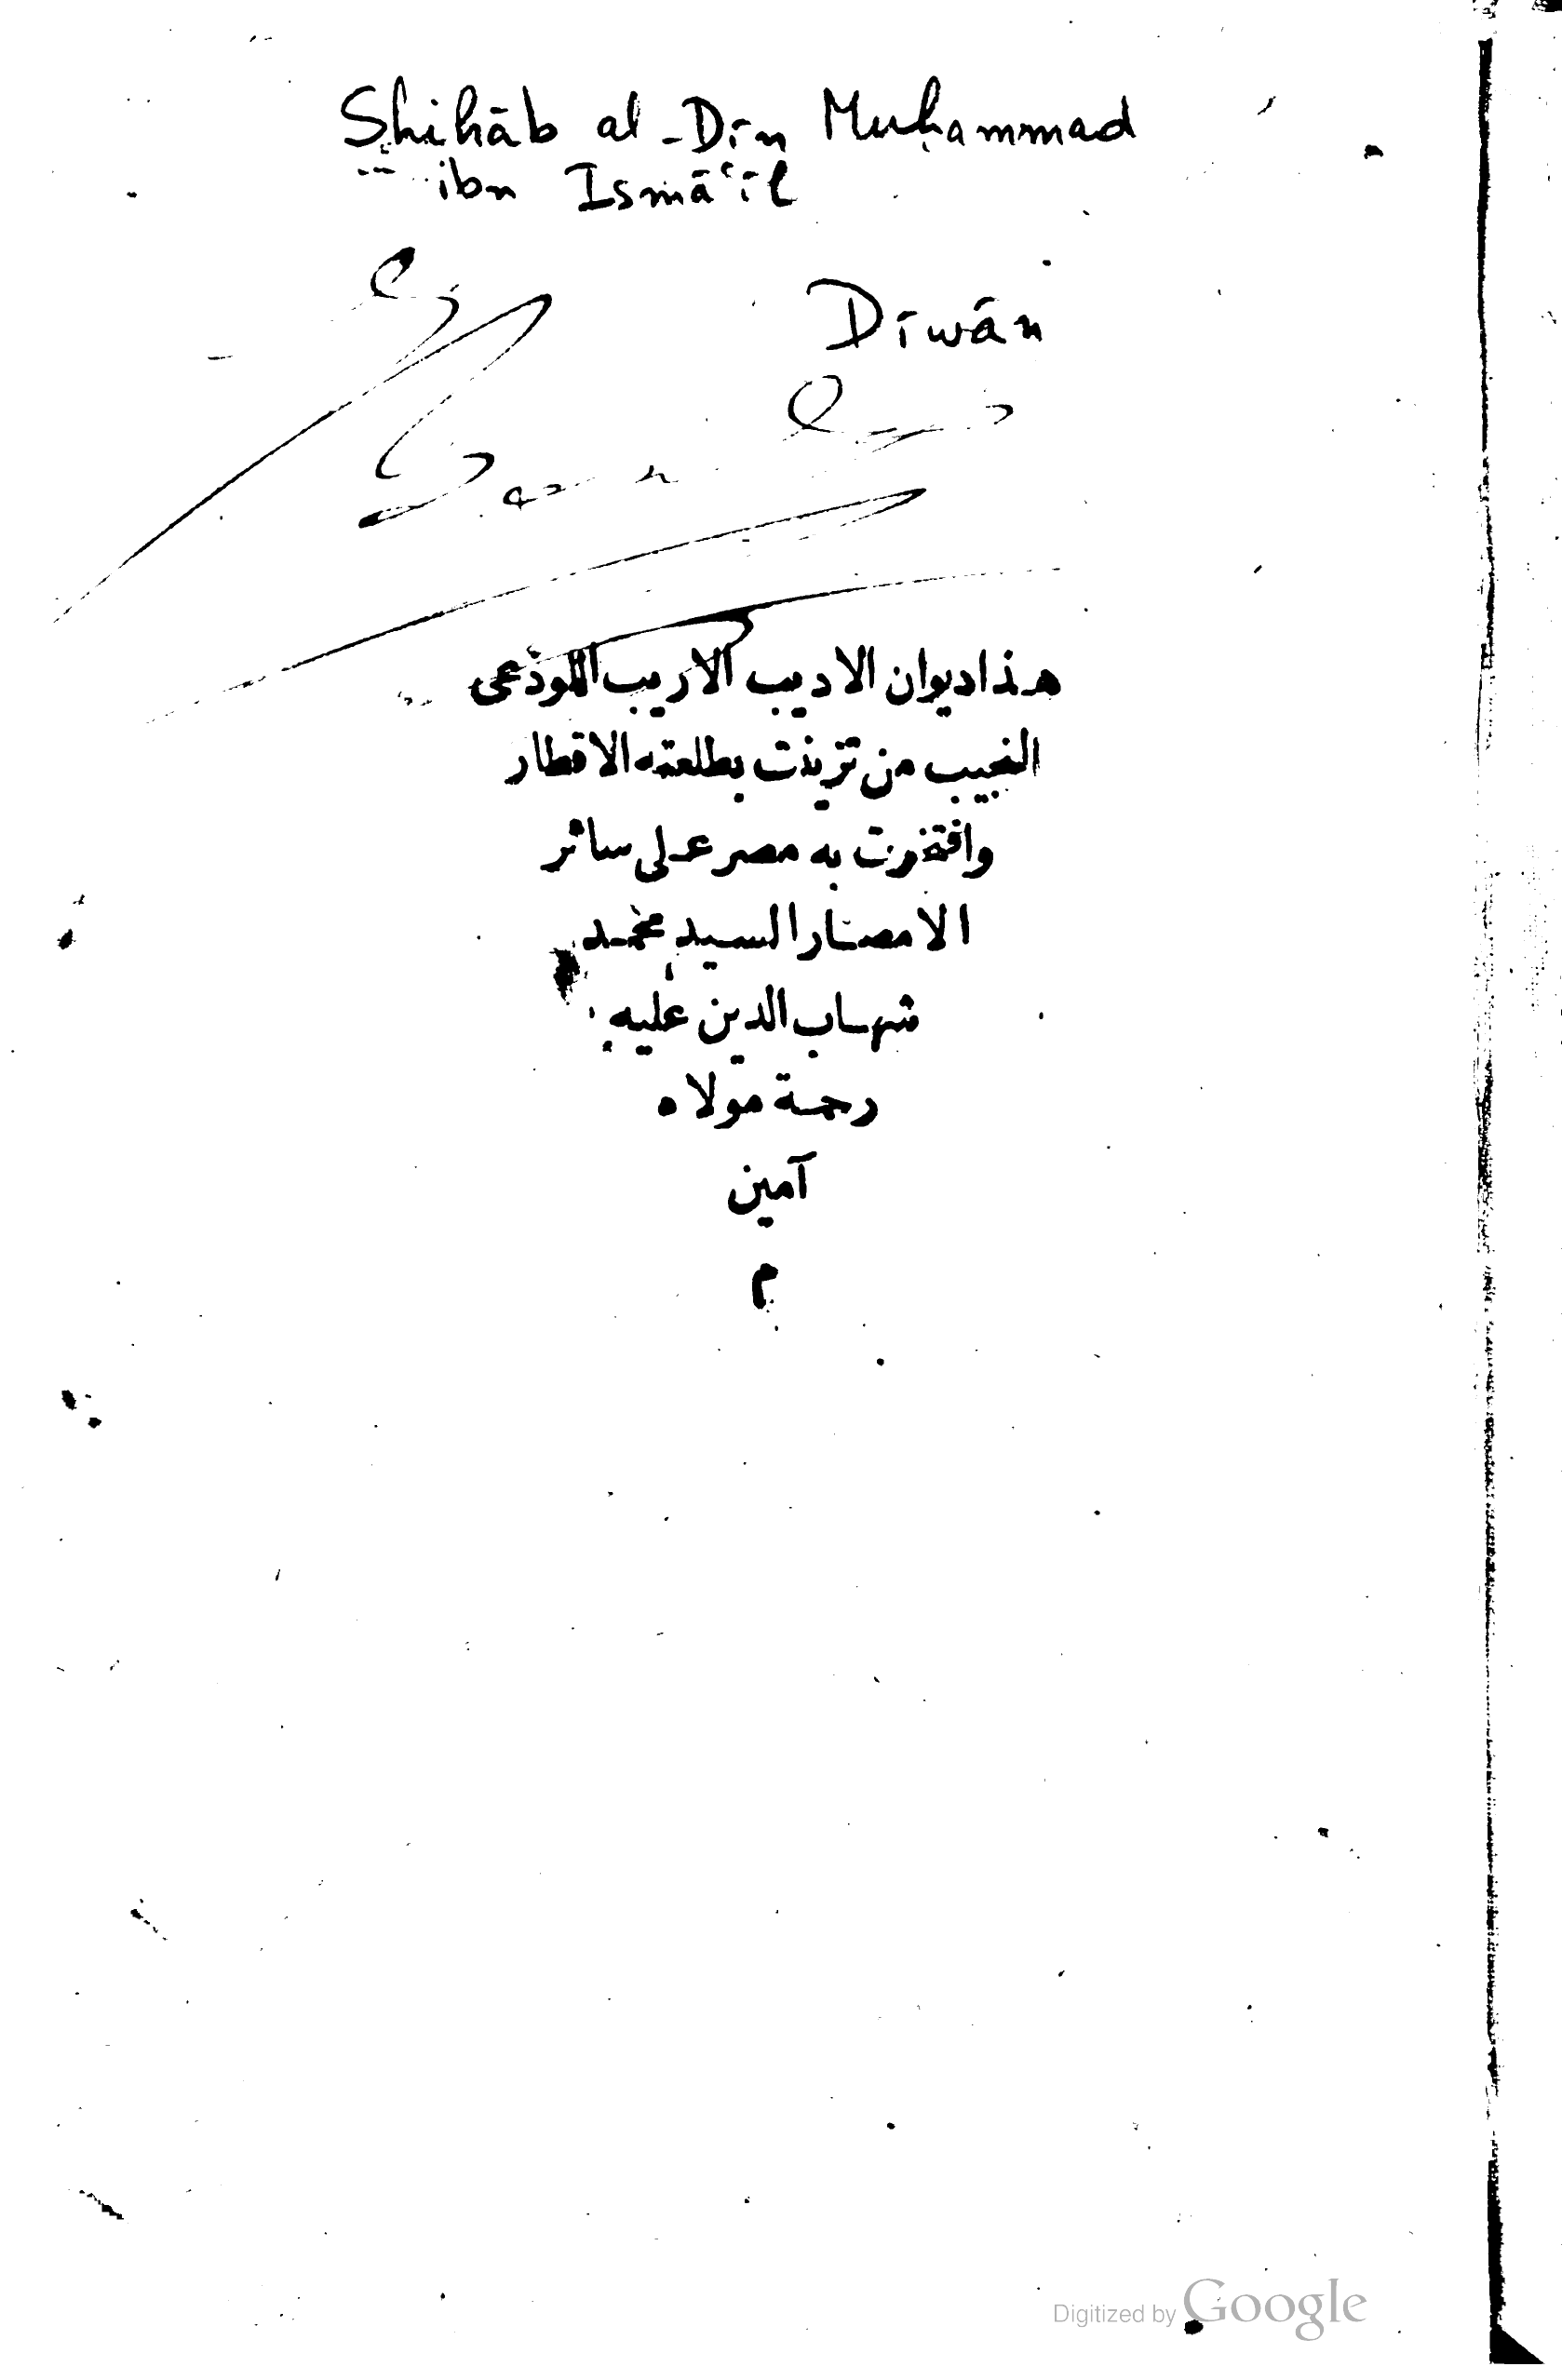 Shihāb al-Dīn Muḥammad
ibn Ismāʿīl
Dīwān
هذا ديوان الاديب الاريب اللوذعى
النجيب من تزينت بطلعته الاقطار
وافتخرت به مصر على سائر
الامصار السيد محمد
شهاب الدين عليه
رحمة مولاه
آمين
م
Digitized by Google